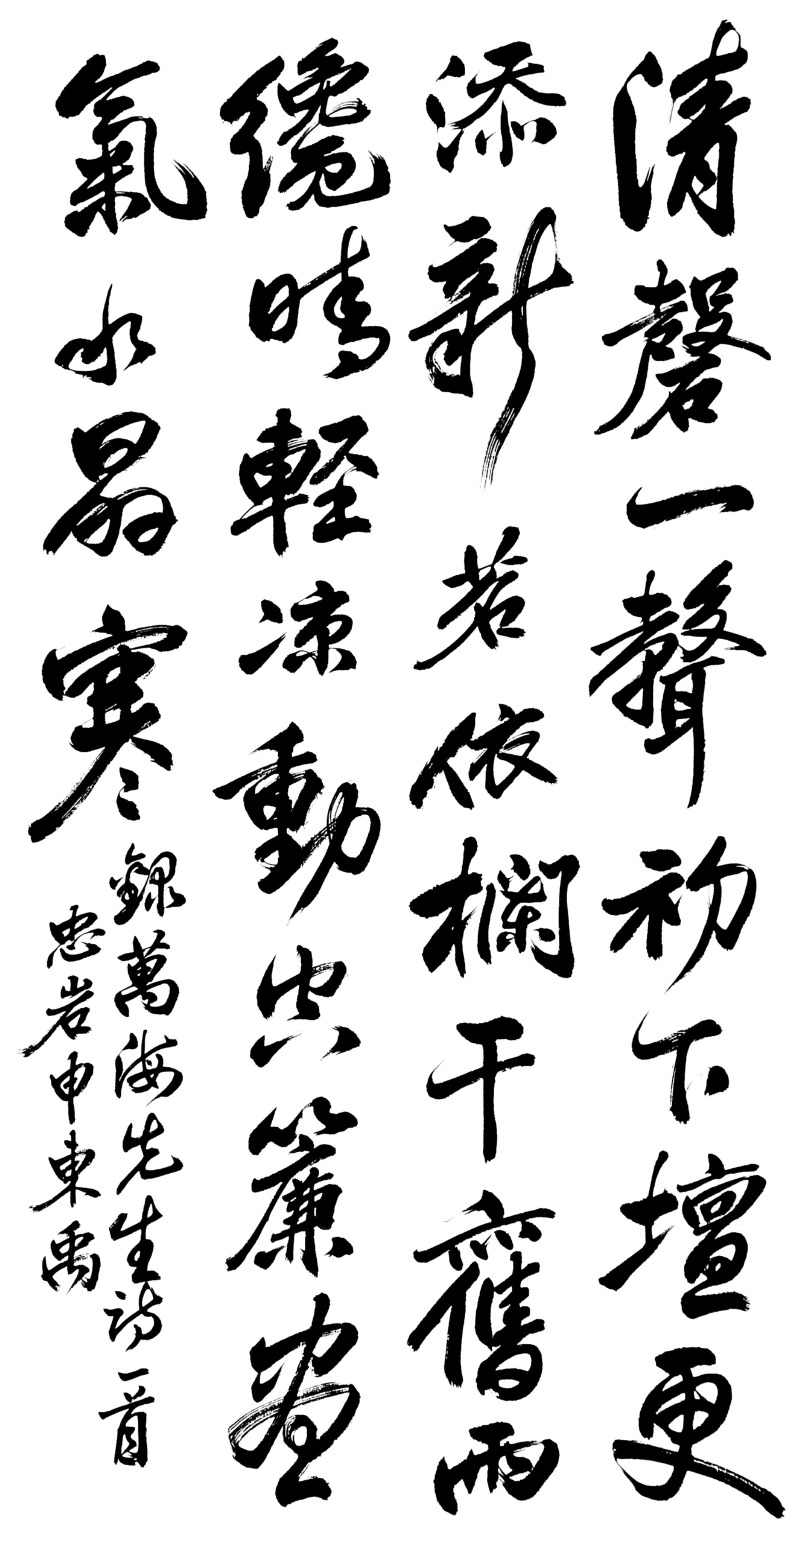 清磬一聲初下壇更
添新茗依欄干舊雨
纔晴輕凉動空簾晝
氣水晶寒
錄萬海先生詩一首
忠岩申東禹